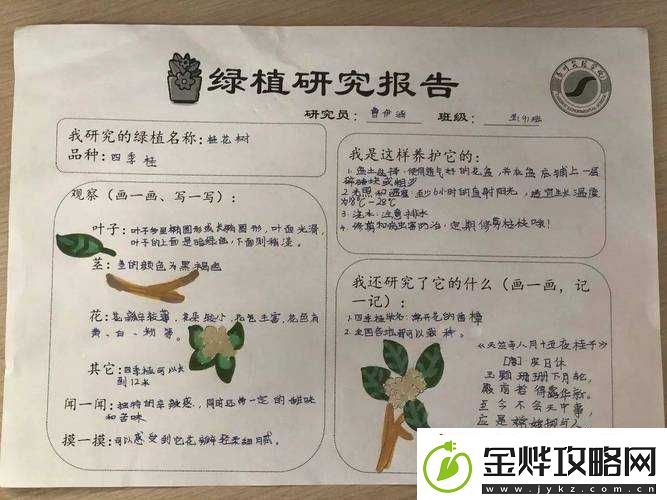 绿植研究报告
研究员：曹伊涵 班级：
我研究的绿植名称：桂花树
品种：四季桂
观察（画一画、写一写）：
叶子：叶子多呈椭圆形或长椭圆形，叶面光滑，
叶子的上面是暗绿色，下面则稍淡。
茎：茎的颜色为黑褐色
花：花瓣年轻薄，花朵较小，花色丰富，花色有
黄、白、等。
其它：四季桂可以长
到12米
闻一闻：独特的辛酸感，同时还带一定的甜味
和苦味
摸一摸：可以感受到它花瓣轻柔细腻。
我是这样养护它的：
1.盆土选择：使用透气好的花盆，并在盆底铺上一层
或粗沙
2.光照和温度：至少6小时的直射阳光，适宜生长温度
为18℃-28℃
3.浇水：注意排水
4.修剪和病虫害防治，定期修剪枯枝哦！
我还研究了它的什么（画一画，记
一记）：
1.四季桂
2.全国各地都可以栽种。
《天竺寺八月十五夜桂子》
[唐] 皮日休
玉颗珊珊下月轮，
殿前拾得露华新。
至今不会天中事，
应是嫦娥掷与人。
金烨攻略网
www.jykz.com.cn